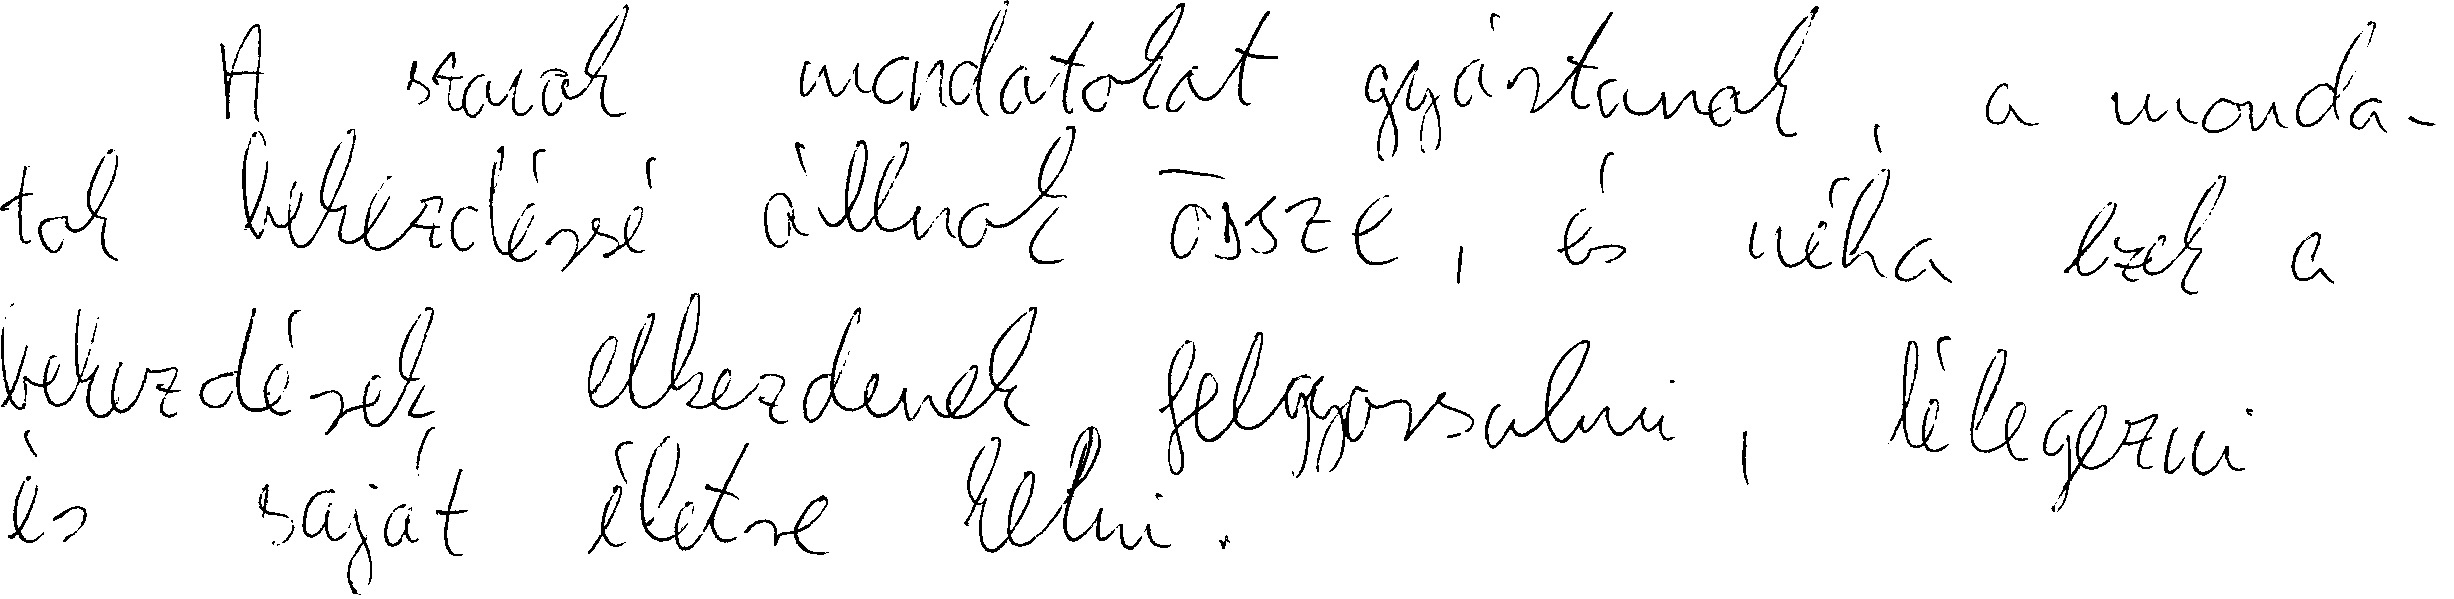 A szavak mondatokat gyártanak, a monda-
tok bekezdéssé állnak össze, és néha ezek a
bekezdések elkezdenek felgyorsulni, lélegezni
és saját életre kelni.